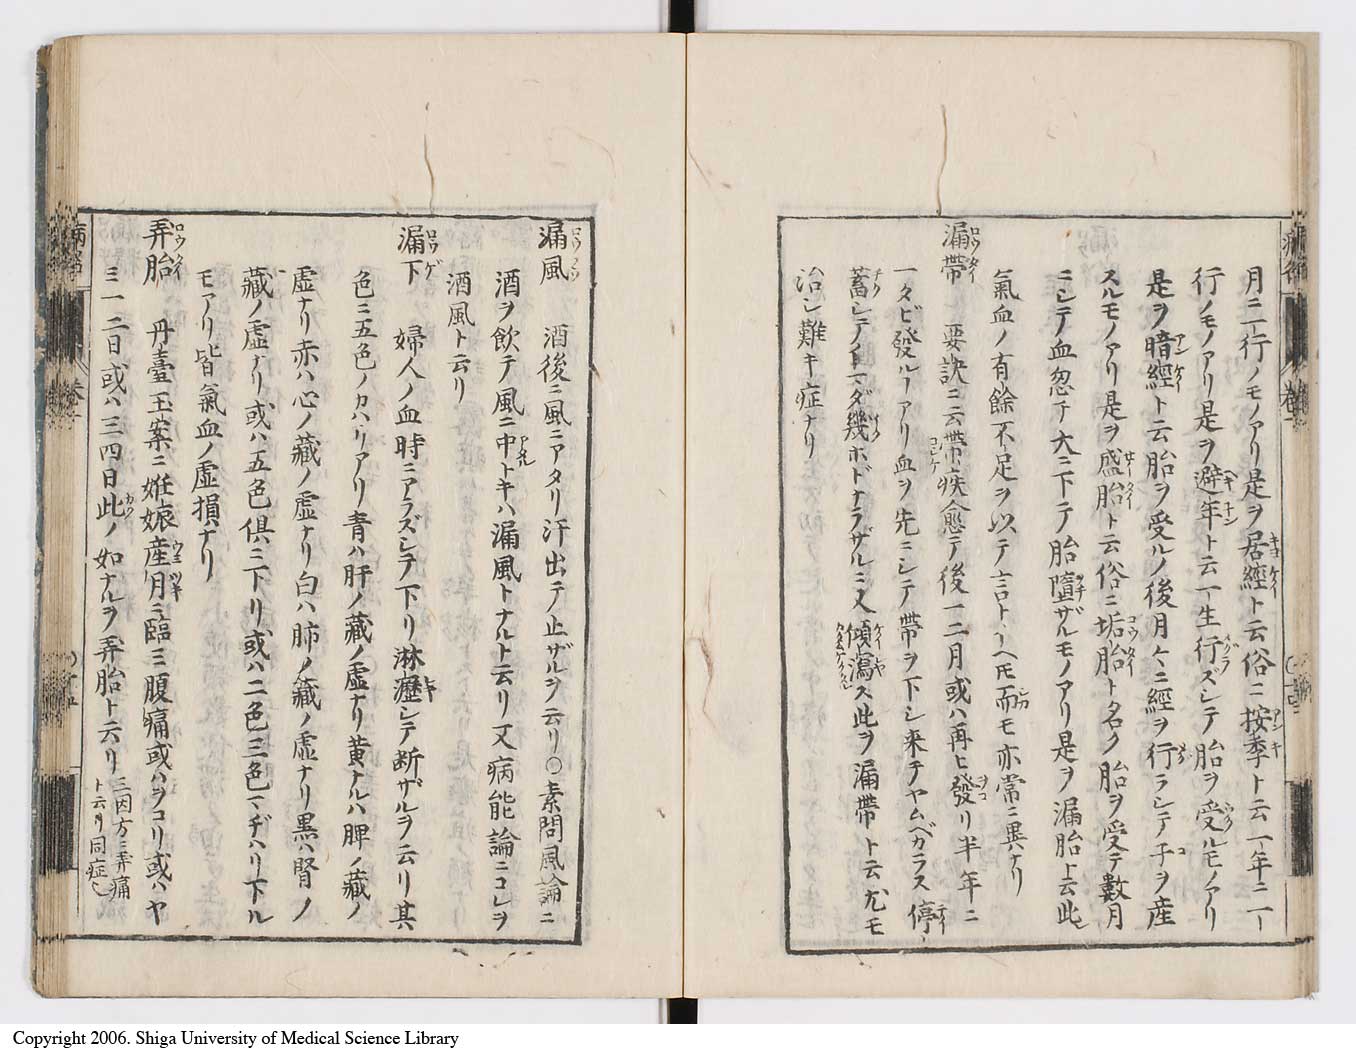 月ニ一行ノモノアリ是ヲ居經ト云俗ニ按季ト云一年ニ一
行ノモノアリ是ヲ避年ト云一生行ズシテ胎ヲ受ルモノアリ
是ヲ暗經ト云胎ヲ受ルノ後月々ニ經ヲ行ラシテ子ヲ産
スルモノアリ是ヲ盛胎ト云俗ニ垢胎ト名ク胎ヲ受テ數月
ニシテ血忽チ大ニ下テ胎墮ザルモノアリ是ヲ漏胎ト云此
氣血ノ有餘不足ヲ以テ言トイヘトモ而モ亦常ニ異ナリ
漏帶 要訣ニ云帶疾愈テ後一二月或ハ再ヒ發リ半年ニ
一タビ發ルアリ血ヲ先ニシテ帶ヲ下シ来テヤムベカラス停
蓄シテノトマダ幾ホドナラザルニ又傾瀉ス此ヲ漏帶ト云尤モ
治シ難キ症ナリ
漏風 酒後ニ風ニアタリ汗出テ止ザルヲ云リ〇素問風論ニ
酒ヲ飲テ風ニ中トキハ漏風トナルト云リ又病能論ニコレヲ
酒風ト云リ
漏下 婦人ノ血時ニアラズシテ下リ淋瀝シテ断ザルヲ云リ其
色ニ五色ノカハリアリ青ハ肝ノ藏ノ虚ナリ黄ナルハ脾ノ藏ノ
虚ナリ赤ハ心ノ藏ノ虚ナリ白ハ肺ノ藏ノ虚ナリ黒ハ腎ノ
藏ノ虚ナリ或ハ五色俱ニ下リ或ハ二色三色マヂハリ下ル
モアリ皆氣血ノ虚損ナリ
弄胎 丹臺玉案ニ姙娠産月ニ臨ミ腹痛或ハヲコリ或ハヤ
ミ一二日或ハ三四日此ノ如ナルヲ弄胎ト云リ 三因方ニ弄痛
ト云リ同症也
Copyright 2006. Shiga University of Medical Science Library